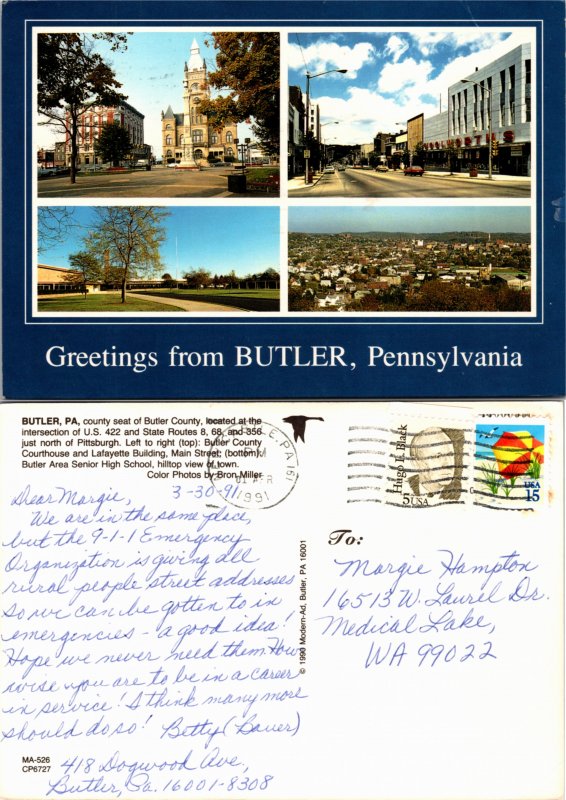 WOOLWORTH'S
Greetings from BUTLER, Pennsylvania
BUTLER, PA, county seat of Butler County, located at the
intersection of U.S. 422 and State Routes 8, 68, and 356
just north of Pittsburgh. Left to right (top): Butler County
Courthouse and Lafayette Building, Main Street; (bottom):
Butler Area Senior High School, hilltop view of town.
Color Photos by Bron Miller
PA 151
PM
01 APR
1991
Hugo L. Black
5USA
USA
15
Dear Margie, 3-30-91
We are in the same place,
but the 9-1-1 Emergency
Organization is giving all
rural people street addresses
so we can be gotten to in
emergencies - a good idea!
Hope we never need them. How
wise you are to be in a career
in service! I think many more
should do so! Betty (Bauer)
418 Dogwood Ave.,
Butler, Pa. 16001-8308
MA-526
CP6727
© 1990 Modern-Ad, Butler, PA 16001
To:
Margie Hampton
16513 W. Laurel Dr.
Medical Lake,
WA 99022